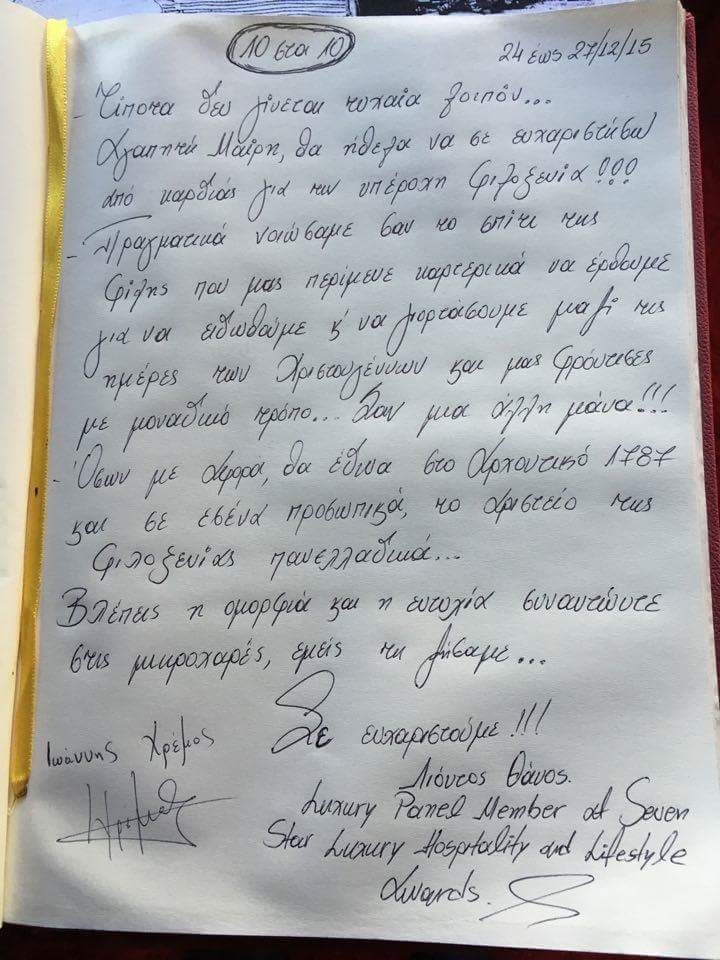 10 στα 10
24 έως 27/12/15
- Τίποτα δεν γίνεται τυχαία λοιπόν...
Αγαπητή Μαίρη, θα ήθελα να σε ευχαριστήσω
από καρδιάς για την υπέροχη φιλοξενία!!!
- Πραγματικά νοιώσαμε σαν το σπίτι της
φίλης που μας περίμενε καρτερικά να έρθουμε
για να ειδωθούμε κ' να γιορτάσουμε μαζί τις
ημέρες των Χριστουγέννων και μας φρόντισες
με μοναδικό τρόπο... Σαν μια άλλη μάνα!!!
- Όσων με αφορά, θα έδινα στο Αρχοντικό 1787
και σε εσένα προσωπικά, το αριστείο της
φιλοξενίας πανελλαδικά...
Βλέπεις η ομορφιά και η ευτυχία συναντώντε
στις μικροχαρές, εμείς τη ζήσαμε...
Σε ευχαριστούμε!!!
Ιωάννης Χρέμος
Λιόντος Θάνος.
Luxury Panel Member at Seven
Star Luxury Hospitality and Lifestyle
Awards.